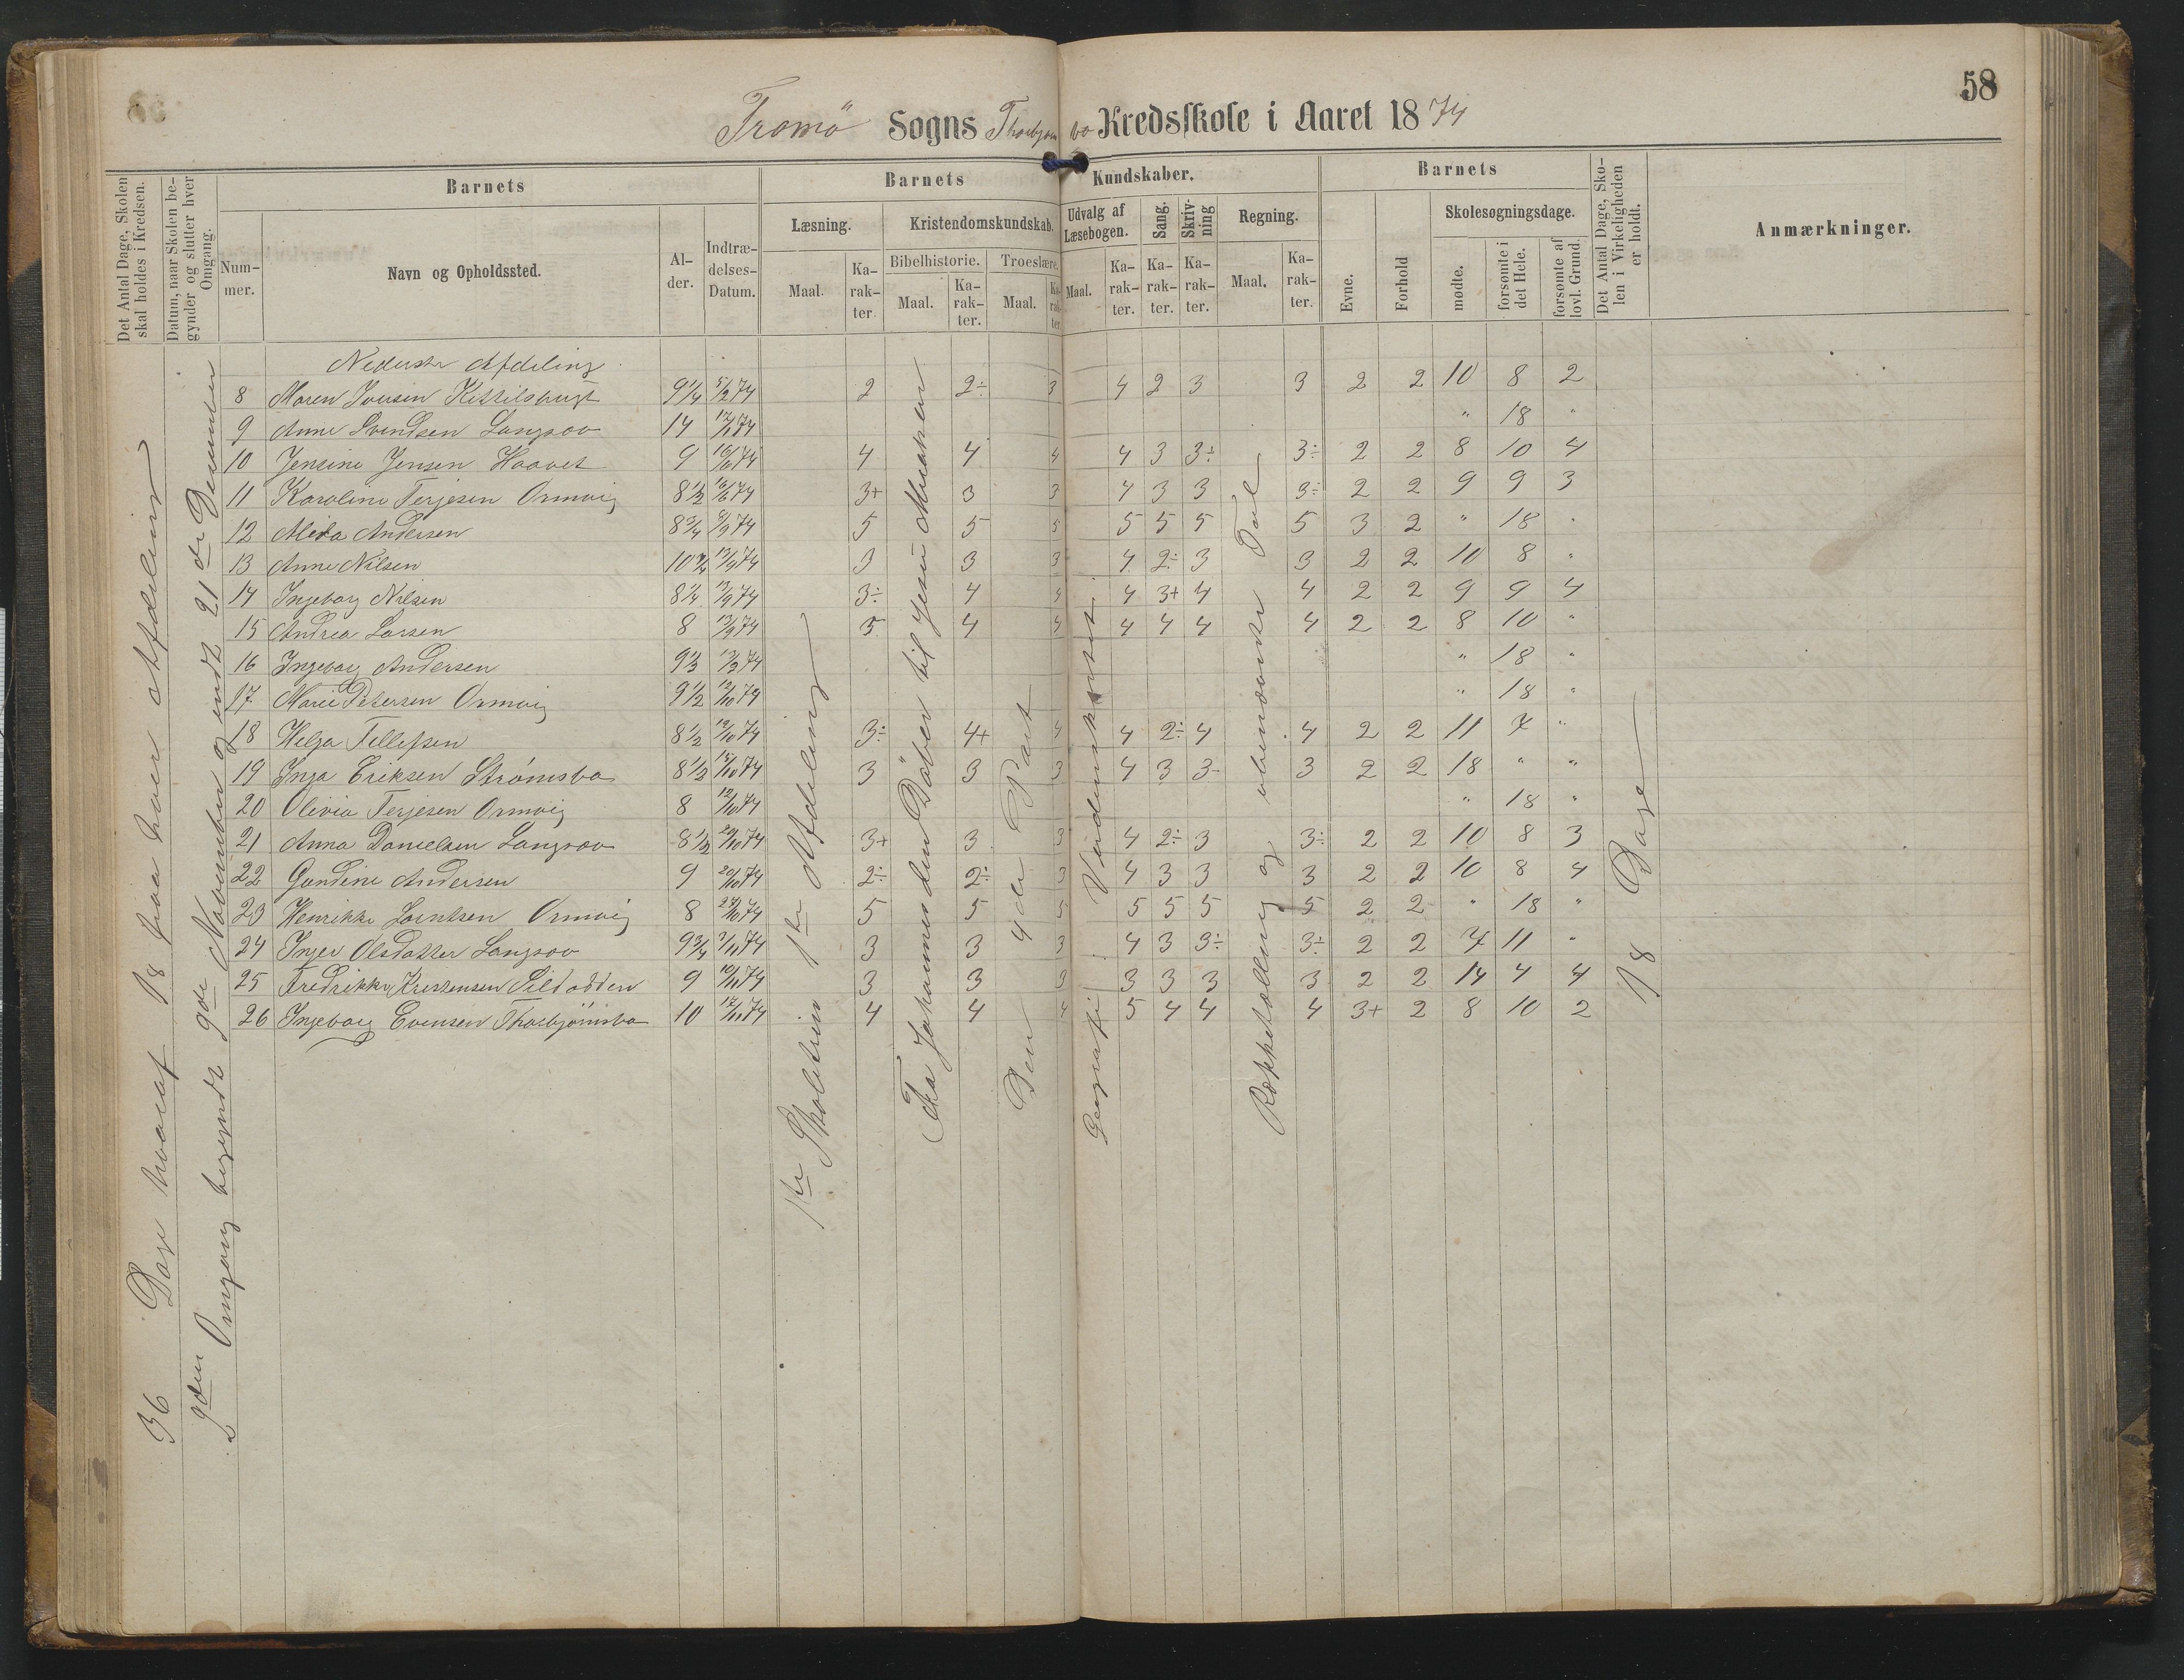 58
Tromö Sogns Thorbjørnsbo Kredsskole i Aaret 1874
Det Antal Dage, Skolen skal holdes i Kredsen.
Datum, naar Skolen begynder og slutter hver Omgang.
Barnets
Nummer.
Navn og Opholdssted.
Alder.
Indtrædelses-Datum.
Barnets Kundskaber.
Læsning.
Maal.
Karakter.
Kristendomskundskab.
Bibelhistorie.
Maal.
Karakter.
Troeslære.
Maal.
Karakter.
Udvalg af Læsebogen.
Maal.
Karakter.
Sang.
Karakter.
Skrivning
Karakter.
Regning.
Maal.
Karakter.
Barnets
Evne.
Forhold
Skolesøgningsdage.
mødte.
forsømte i det Hele.
forsømte af lovl. Grund.
Det Antal Dage, Skolen i Virkeligheden er holdt.
Anmærkninger.
36 Dage hvoraf 18 paa hver Afdeling
2den Omgang begyndt 9de November og endt 21de December
1ste Skoletrin 1ste Afdeling
Fra Johannes den Døber til Jesu Mirakler
Den 4de Part
Geografi: Verdensk
Rækketælling og ubenævnte Tal
18 Dage
Nederste Afdeling
8 Maren Iversen Kittilsbugt 9 1/4 5/2 74 2 2÷ 3 4 2 3 3 2 2 10 8 2
9 Anne Svendsen Langsæv 14 74 " 18 "
10 Jensine Jensen Haavet 9 16/6 74 4 4 4 4 3 3÷ 3÷ 2 2 8 10 4
11 Karoline Terjesen Ormvig 8 1/2 16/6 74 3+ 3 3 4 3 3 3÷ 2 2 9 9 3
12 Alida Andersen 8 3/4 74 5 5 5 5 5 5 5 3 2 " 18 "
13 Anne Nilsen 10 3/4 74 3 3 3 4 2÷ 3 3 2 2 10 8 "
14 Ingeborg Nilsen 8 1/4 74 3÷ 4 4 4 3+ 4 4 2 2 9 9 4
15 Andrea Larsen 8 74 5 4 4 4 4 4 4 2 2 8 10 "
16 Ingeborg Andersen 74 " 18 "
17 Marie Petersen Ormvig 9 1/2 12/10 74 " 18 "
18 Helga Tellefsen 8 1/2 12/10 74 3÷ 4+ 4 4 2÷ 4 4 2 2 11 7 "
19 Inga Eriksen Strømsbo 8 1/2 74 3 3 3 4 3 3 3 2 2 18 " "
20 Olivia Terjesen Ormvig 8 12/10 74 " 18 "
21 Anna Danielsen Langsæv 8 1/2 20/10 74 3+ 3 3 4 2÷ 3 3÷ 2 2 10 8 3
22 Gundine Andersen 9 20/10 74 2÷ 2÷ 3 4 3 3 3 2 2 10 8 4
23 Henrikke Lorntsen Ormvig 8 74 5 5 5 5 5 5 5 2 2 " 18 "
24 Inger Olsdatter Langsæv 9 3/4 74 3 3 3 4 3 3÷ 3÷ 2 2 7 11 "
25 Fredrikke Kristensen Sildodden 9 10/11 74 3 3 3 3 3 3 3 2 2 14 4 4
26 Ingeborg Evensen Thorbjørnsbo 10 12/11 74 4 4 4 5 4 4 4 3+ 2 8 10 2